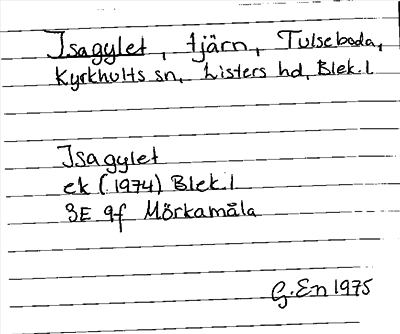 Isagylet, tjärn, Tulseboda,
Kyrkhults sn, Listers hd, Blek.l
Isagylet
ek (1974) Blek.l
3E 9f Mörkamåla
G.En 1975